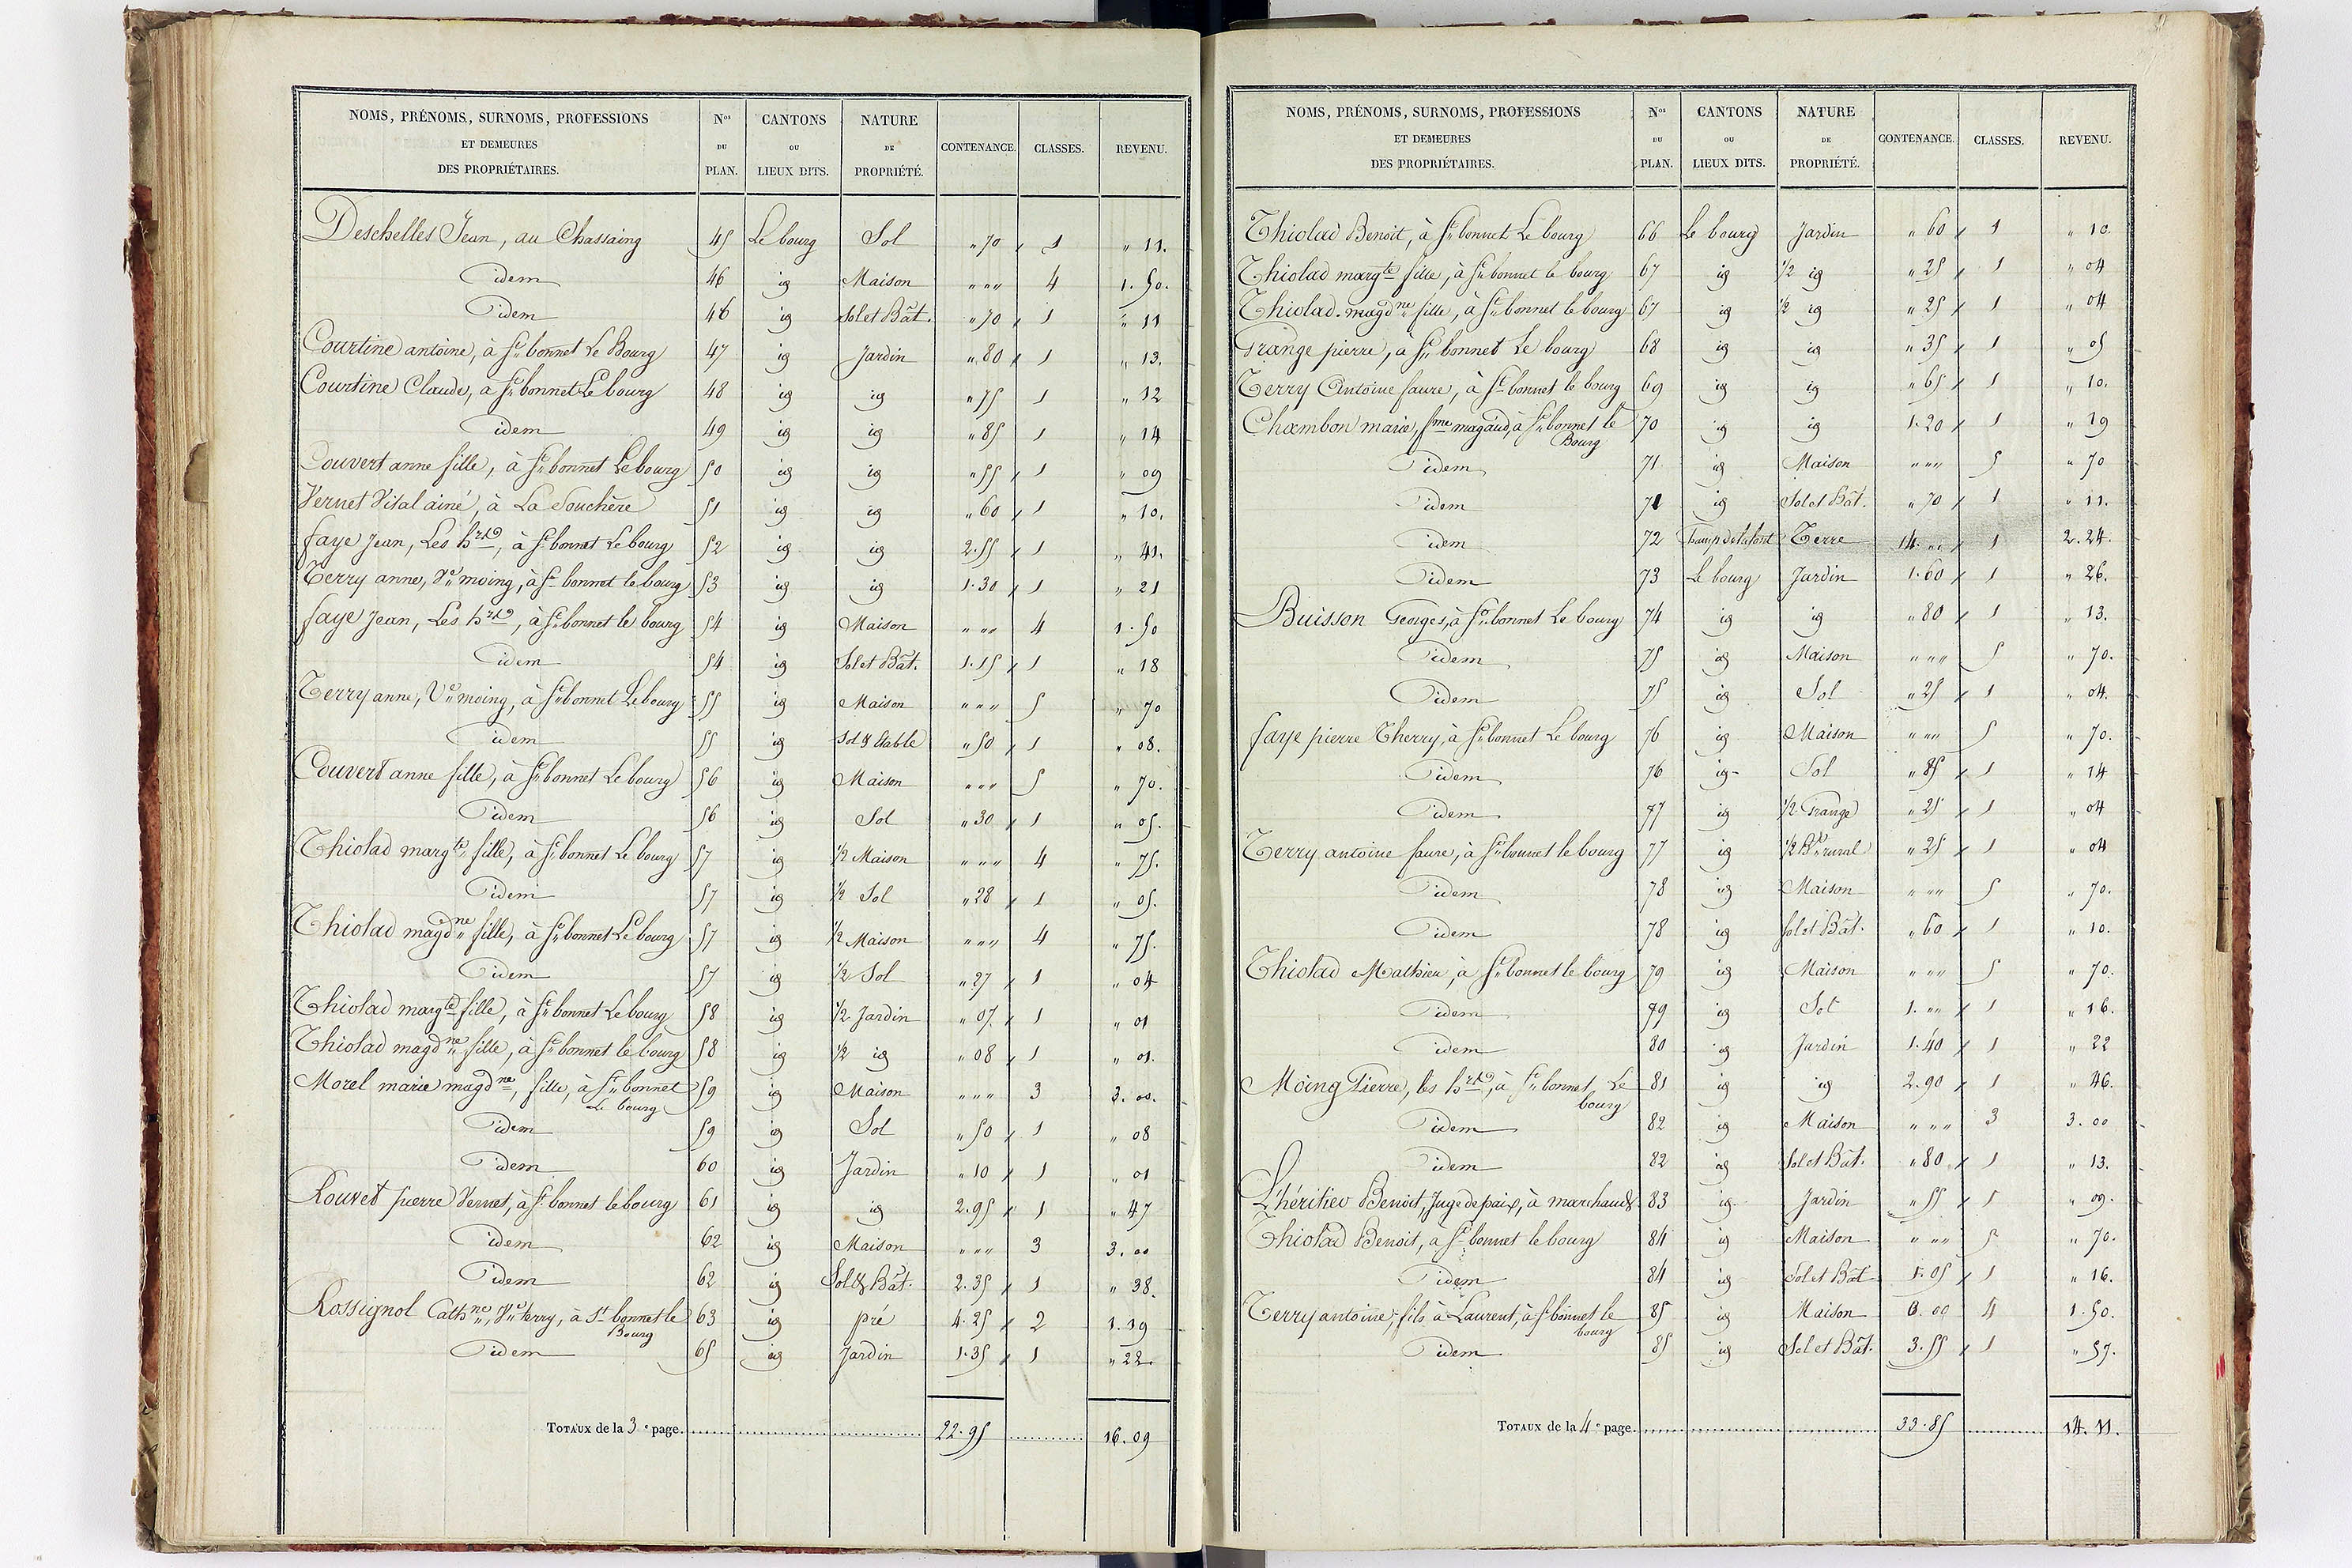 NOMS, PRÉNOMS, SURNOMS, PROFESSIONS ET DEMEURES DES PROPRIÉTAIRES. Nos DU PLAN. CANTONS OU LIEUX DITS. NATURE DE PROPRIÉTÉ. CONTENANCE. CLASSES. REVENU.
Deschelles Jean, au Chassaing 45 Le bourg Sol " 70 1 " 11.
idem 46 id Maison " " " 4 1. 50.
idem 46 id Sol et Bât. " 70 1 " 11
Courtine antoine, à St bonnet Le Bourg 47 id Jardin " 80 1 " 13.
Courtine Claude, à St bonnet Le bourg 48 id id " 75 1 " 12
idem 49 id id " 85 1 " 14
Couvert anne fille, à St bonnet Le bourg 50 id id " 55 1 " 09
Vernet Vital ainé, à La Souchère 51 id id " 60 1 " 10.
faye Jean, Les hrs, à St bonnet Le bourg 52 id id 2. 55 1 " 41.
Terry anne, Ve moing, à St bonnet le bourg 53 id id 1. 30 1 " 21
faye Jean, Les hrs, à St bonnet le bourg 54 id Maison " " " 4 1. 50
idem 54 id Sol et Bât. 1. 15 1 " 18
Terry anne, Ve moing, à St bonnet Le bourg 55 id Maison " " " 5 " 70
idem 55 id Sol & Etable " 50 1 " 08.
Couvert anne fille, à St bonnet Le bourg 56 id Maison " " " 5 " 70.
idem 56 id Sol " 30 1 " 05.
Thiolad margte fille, à St bonnet Le bourg 57 id 1/2 Maison " " " 4 " 75.
idem 57 id 1/2 Sol " 28 1 " 05.
Thiolad magdne fille, à St bonnet Le bourg 57 id 1/2 Maison " " " 4 " 75.
idem 57 id 1/2 Sol " 27 1 " 04
Thiolad margte fille, à St bonnet Le bourg 58 id 1/2 Jardin " 07. 1 " 01
Thiolad magdne fille, à St bonnet le bourg 58 id 1/2 id " 08 1 " 01.
Morel marie magdne, fille, à St bonnet 59 id Maison " " " 3 3. 00.
Le bourg
idem 59 id Sol " 50 1 " 08
idem 60 id Jardin " 10 1 " 01
Rouvet pierre Vernet, à St bonnet le bourg 61 id id 2. 95 1 " 47
idem 62 id Maison " " " 3 3. 00
idem 62 id Sol & Bât. 2. 35 1 " 38.
Rossignol Cathne, Ve terry, à St bonnet le 63 id pré 4. 25 2 1. 19
Bourg
idem 65 id Jardin 1. 35 1 " 22
TOTAUX de la 3e page 22. 95 16. 09
NOMS, PRÉNOMS, SURNOMS, PROFESSIONS ET DEMEURES DES PROPRIÉTAIRES. Nos DU PLAN. CANTONS OU LIEUX DITS. NATURE DE PROPRIÉTÉ. CONTENANCE. CLASSES. REVENU.
Thiolad Benoit, à St bonnet Le bourg 66 Le bourg Jardin " 60 1 " 10.
Thiolad margte fille, à St bonnet le bourg 67 id 1/2 id " 25 1 " 04
Thiolad magdne fille, à St bonnet le bourg 67 id 1/2 id " 25 1 " 04
Grange pierre, à St bonnet Le bourg 68 id id " 35 1 " 05
Terry Antoine faure, à St bonnet le bourg 69 id id " 65 1 " 10.
Chambon marie, fme magaud, à St bonnet le 70 id id 1. 20 1 " 19
Bourg
idem 71 id Maison " " " 5 " 70
idem 71 id Sol et Bât. " 70 1 " 11.
idem 72 Terre 14. " " 1 2. 24.
idem 73 Le bourg Jardin 1. 60 1 " 26.
Buisson Georges, à St bonnet Le bourg 74 id id " 80 1 " 13.
idem 75 id Maison " " " 5 " 70.
idem 75 id Sol " 25 1 " 04.
faye pierre Therry, à St bonnet Le bourg 76 id Maison " " " 5 " 70.
idem 76 id Sol " 85 1 " 14
idem 77 id 1/2 Grange " 25 1 " 04
Terry antoine faure, à St bonnet le bourg 77 id 1/2 Bt rural " 25 1 " 04
idem 78 id Maison " " " 5 " 70.
idem 78 id Sol et Bât. " 60 1 " 10.
Thiolad Mathieu, à St bonnet le bourg 79 id Maison " " " 5 " 70.
idem 79 id Sol 1. " " 1 " 16.
idem 80 id Jardin 1. 40 1 " 22
Moing Pierre, les hrs, à St bonnet, Le 81 id id 2. 90 1 " 46.
bourg
idem 82 id Maison " " " 3 3. 00
idem 82 id Sol et Bât. " 80 1 " 13.
L'héritier Benoit, Juge de paix, à marchaud 83 id Jardin " 55 1 " 09.
Thiolad Benoit, à St bonnet le bourg 84 id Maison " " " 5 " 70.
idem 84 id Sol et Bât 1. 05 1 " 16.
Terry antoine, fils à Laurent, à St bonnet le 85 id Maison 0. 00 4 1. 50.
bourg
idem 85 id Sol et Bât. 3. 55 1 " 57.
TOTAUX de la 4e page 33. 85 14. 11.